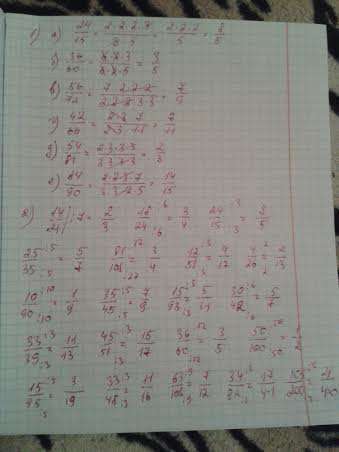 1) а) 24/15 = 2·2·2·3/3·5 = 2·2·2/5 = 8/5
б) 36/60 = 3/5
в) 56/72 = 7·2·2·2/2·2·2·3·3 = 7/9
г) 42/66 = 2·3·7/2·3·11 = 7/11
д) 54/81 = 2·3·3·3/3·3·3·3 = 2/3
е) 84/90 = 2·2·3·7/3·3·2·5 = 14/15
2) 14/21 :7 = 2/3 18/24 :6 = 3/4 24/15 :3 :3 = 8/5
25/35 :5 :5 = 5/7 81/108 :27 = 3/4 12/51 :3 :3 = 4/17 4/26 :2 = 2/13
10/90 :10 :10 = 1/9 35/45 :5 :5 = 7/9 15/93 :3 :3 = 5/31 30/42 :6 = 5/7
33/39 :3 :3 = 11/13 45/51 :3 :3 = 15/17 36/60 :12 :12 = 3/5 50/100 :50 = 1/2
15/95 :5 = 3/19 33/48 :3 :3 = 11/16 63/108 :9 = 7/12 34/ :2 = 17/41 105/200 :5 = 21/40